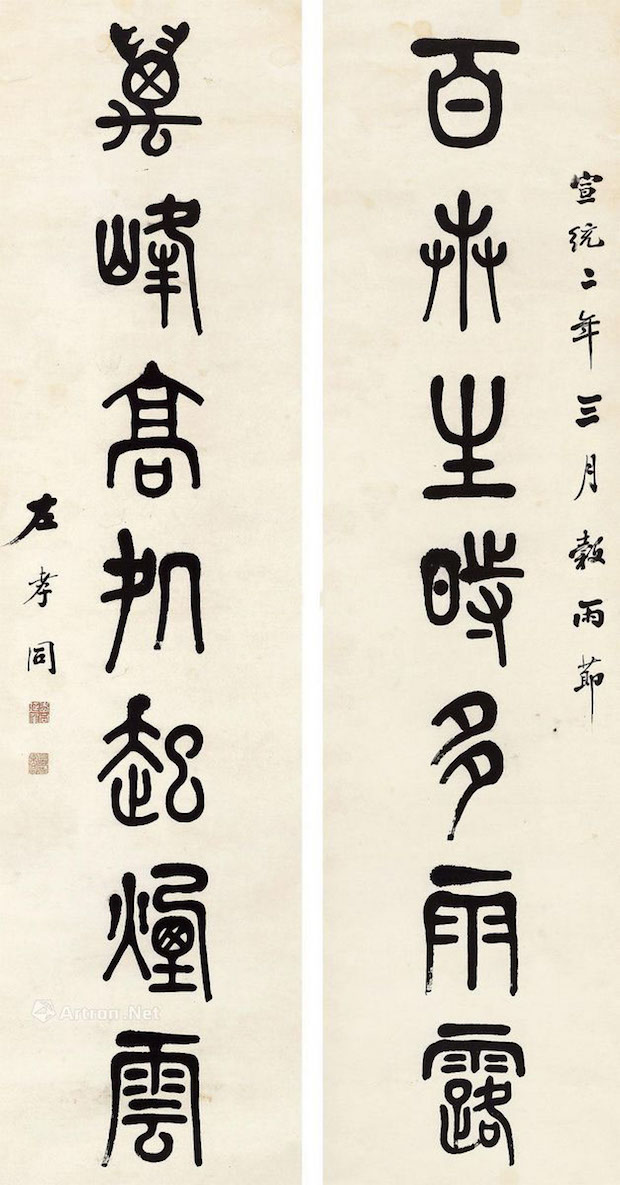 宣統二年三月穀雨節
百卉生時多雨露
萬峰高処起煙雲
左孝同
Artron.Net